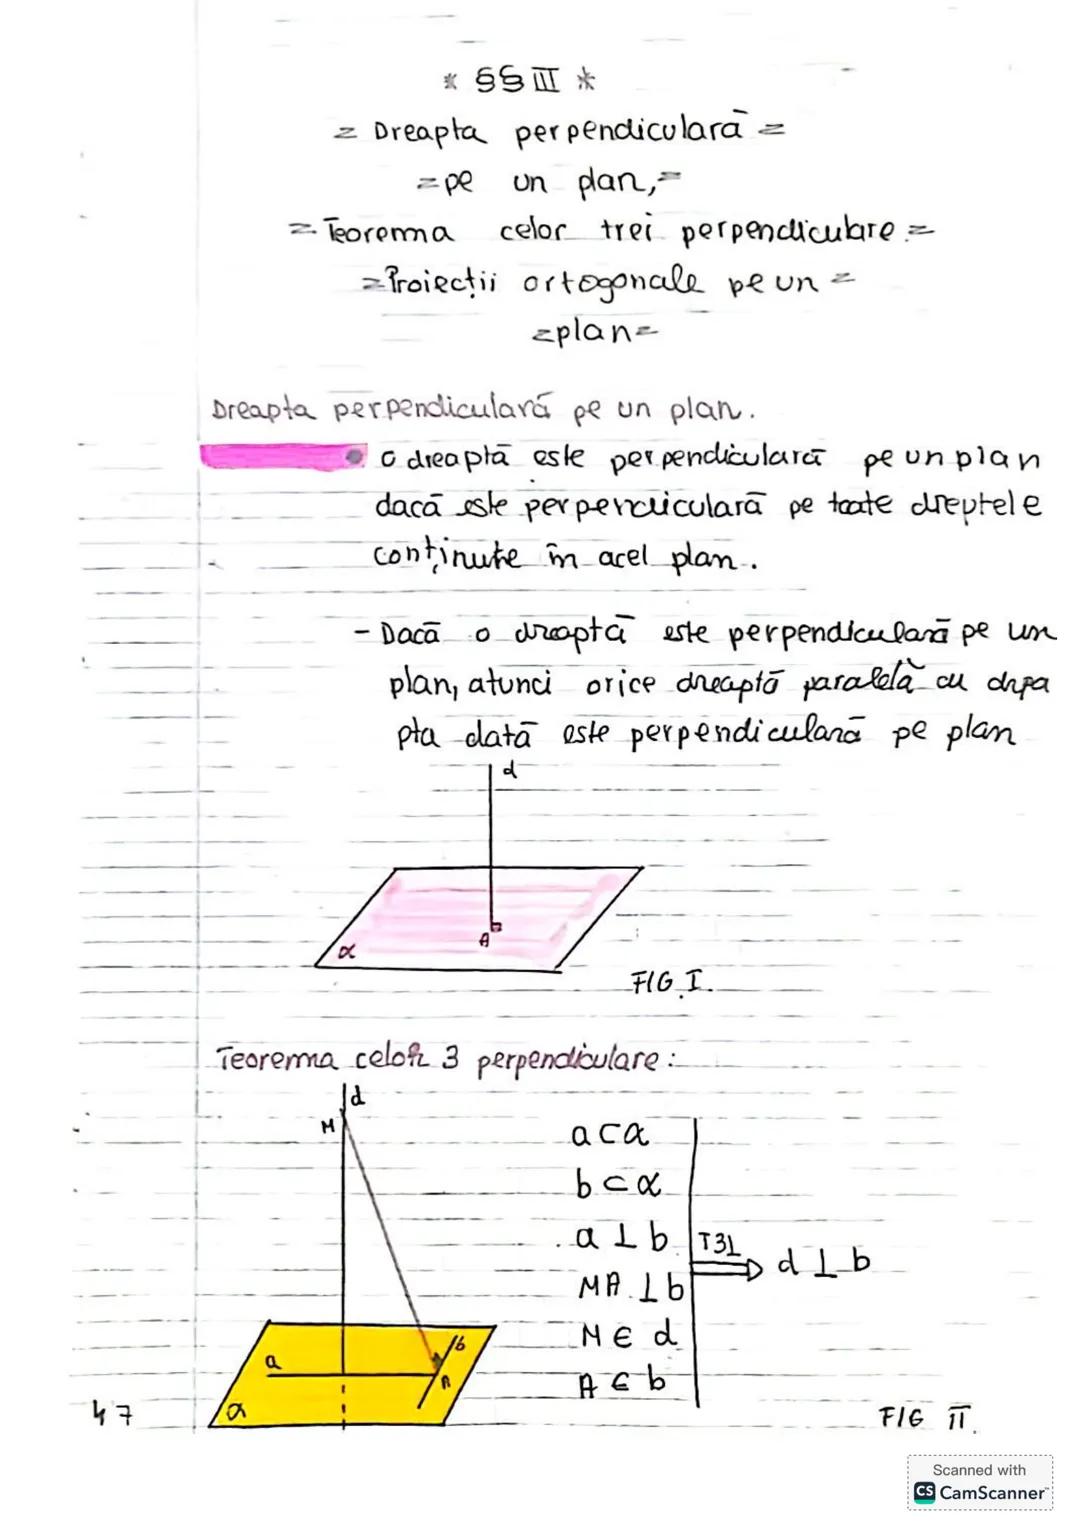 * §§ III *
= Dreapta perpendiculară =
= pe un plan, =
= Teorema celor trei perpendiculare =
= Proiecții ortogonale pe un =
= plan =
Dreapta perpendiculară pe un plan.
• o dreaptă este perpendiculară pe un plan
dacă este perpendiculară pe toate dreptele
conținute în acel plan.
- Dacă o dreaptă este perpendiculară pe un
plan, atunci orice dreaptă paralelă cu
pta dată este perpendiculară pe plan
d
A
α
FIG I.
Teorema celor 3 perpendiculare:
d
M
a ⊂ α
b ⊂ α
a ⊥ b
T3⊥
d ⊥ b
MA ⊥ b
M ∈ d
A ∈ b
a
b
A
α
47
FIG II.
Scanned with
CS CamScanner™